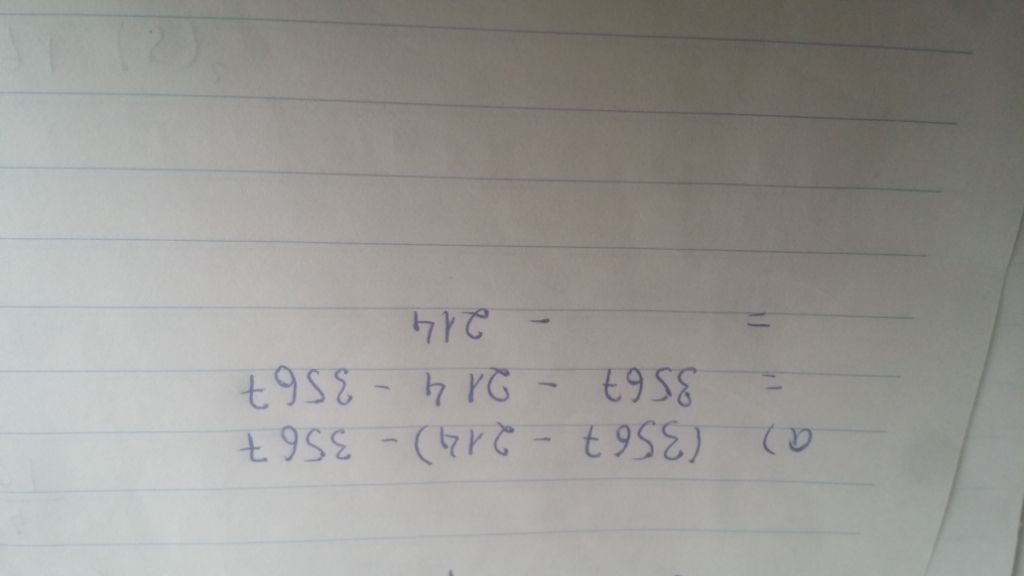 a) (3567 - 214) - 3567
= 3567 - 214 - 3567
= - 214